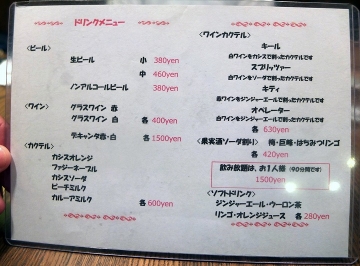 ドリンクメニュー
<ビール>
生ビール 小 380yen
中 460yen
ノンアルコールビール 380yen
<ワイン>
グラスワイン 赤
グラスワイン 白 各400yen
デキャンタ赤・白 各1500yen
<カクテル>
カシスオレンジ
ファジーネーブル
カシスソーダ
ピーチミルク
カルーアミルク 各600yen
<ワインカクテル>
キール
白ワインをカシスで割ったカクテルです
スプリッツァー
白ワインをソーダで割ったカクテルです
キティ
赤ワインをジンジャーエールで割ったカクテルです
オペレーター
白ワインをジンジャーエールで割ったカクテルです
各630yen
<果実酒ソーダ割り> 梅・巨峰・はちみつリンゴ
各420yen
飲み放題は、お1人様 (90分間です)
1500yen
<ソフトドリンク>
ジンジャーエール・ウーロン茶
リンゴ・オレンジジュース 各280yen